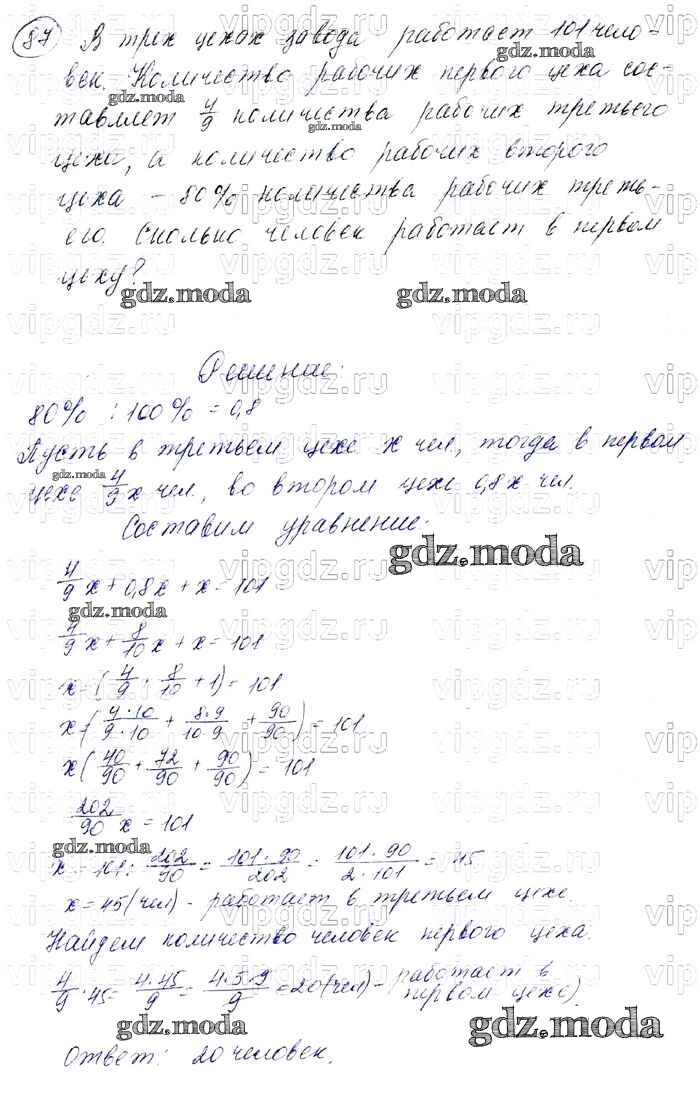 87 В трех цехах завода работает 101 чело-
век. Количество рабочих первого цеха сос-
gdz.moda
тавляет 4/9 количества рабочих третьего
gdz.moda
цеха, а количество рабочих второго
цеха – 80% количества рабочих треть-
его. Сколько человек работает в первом
цеху?
gdz.moda
Решение:
80% : 100% = 0,8
Пусть в третьем цехе x чел., тогда в первом
gdz.moda
цехе 4/9 x чел., во втором цехе 0,8x чел.
Составим уравнение:
gdz.moda
4/9 x + 0,8x + x = 101
gdz.moda
4/9 x + 8/10 x + x = 101
x = (4/9 + 8/10 + 1) = 101
x (4·10/9·10 + 8·9/10·9 + 90/90) = 101
x (40/90 + 72/90 + 90/90) = 101
202/90 x = 101
gdz.moda
x = 101 : 202/90 = 101·90/202 = 101·90/2·101 = 45
x = 45 (чел) - работает в третьем цехе.
Найдем количество человек первого цеха.
4/9 · 45 = 4·45/9 = 4·5·9/9 = 20 (чел) - работает в
первом цехе).
gdz.moda
Ответ: 20 человек.
gdz.moda